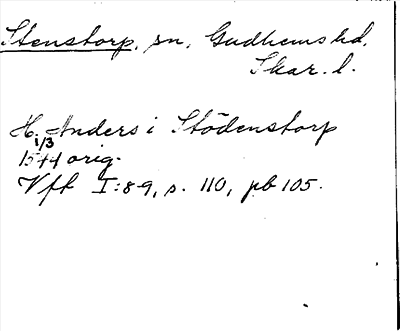 Stenstorp, sn, Gudhems hd,
Skar. l.
H. Anders i Stödenstorp
1/3
1544 orig.
Vfh I:8-9, s. 110, pb 105.